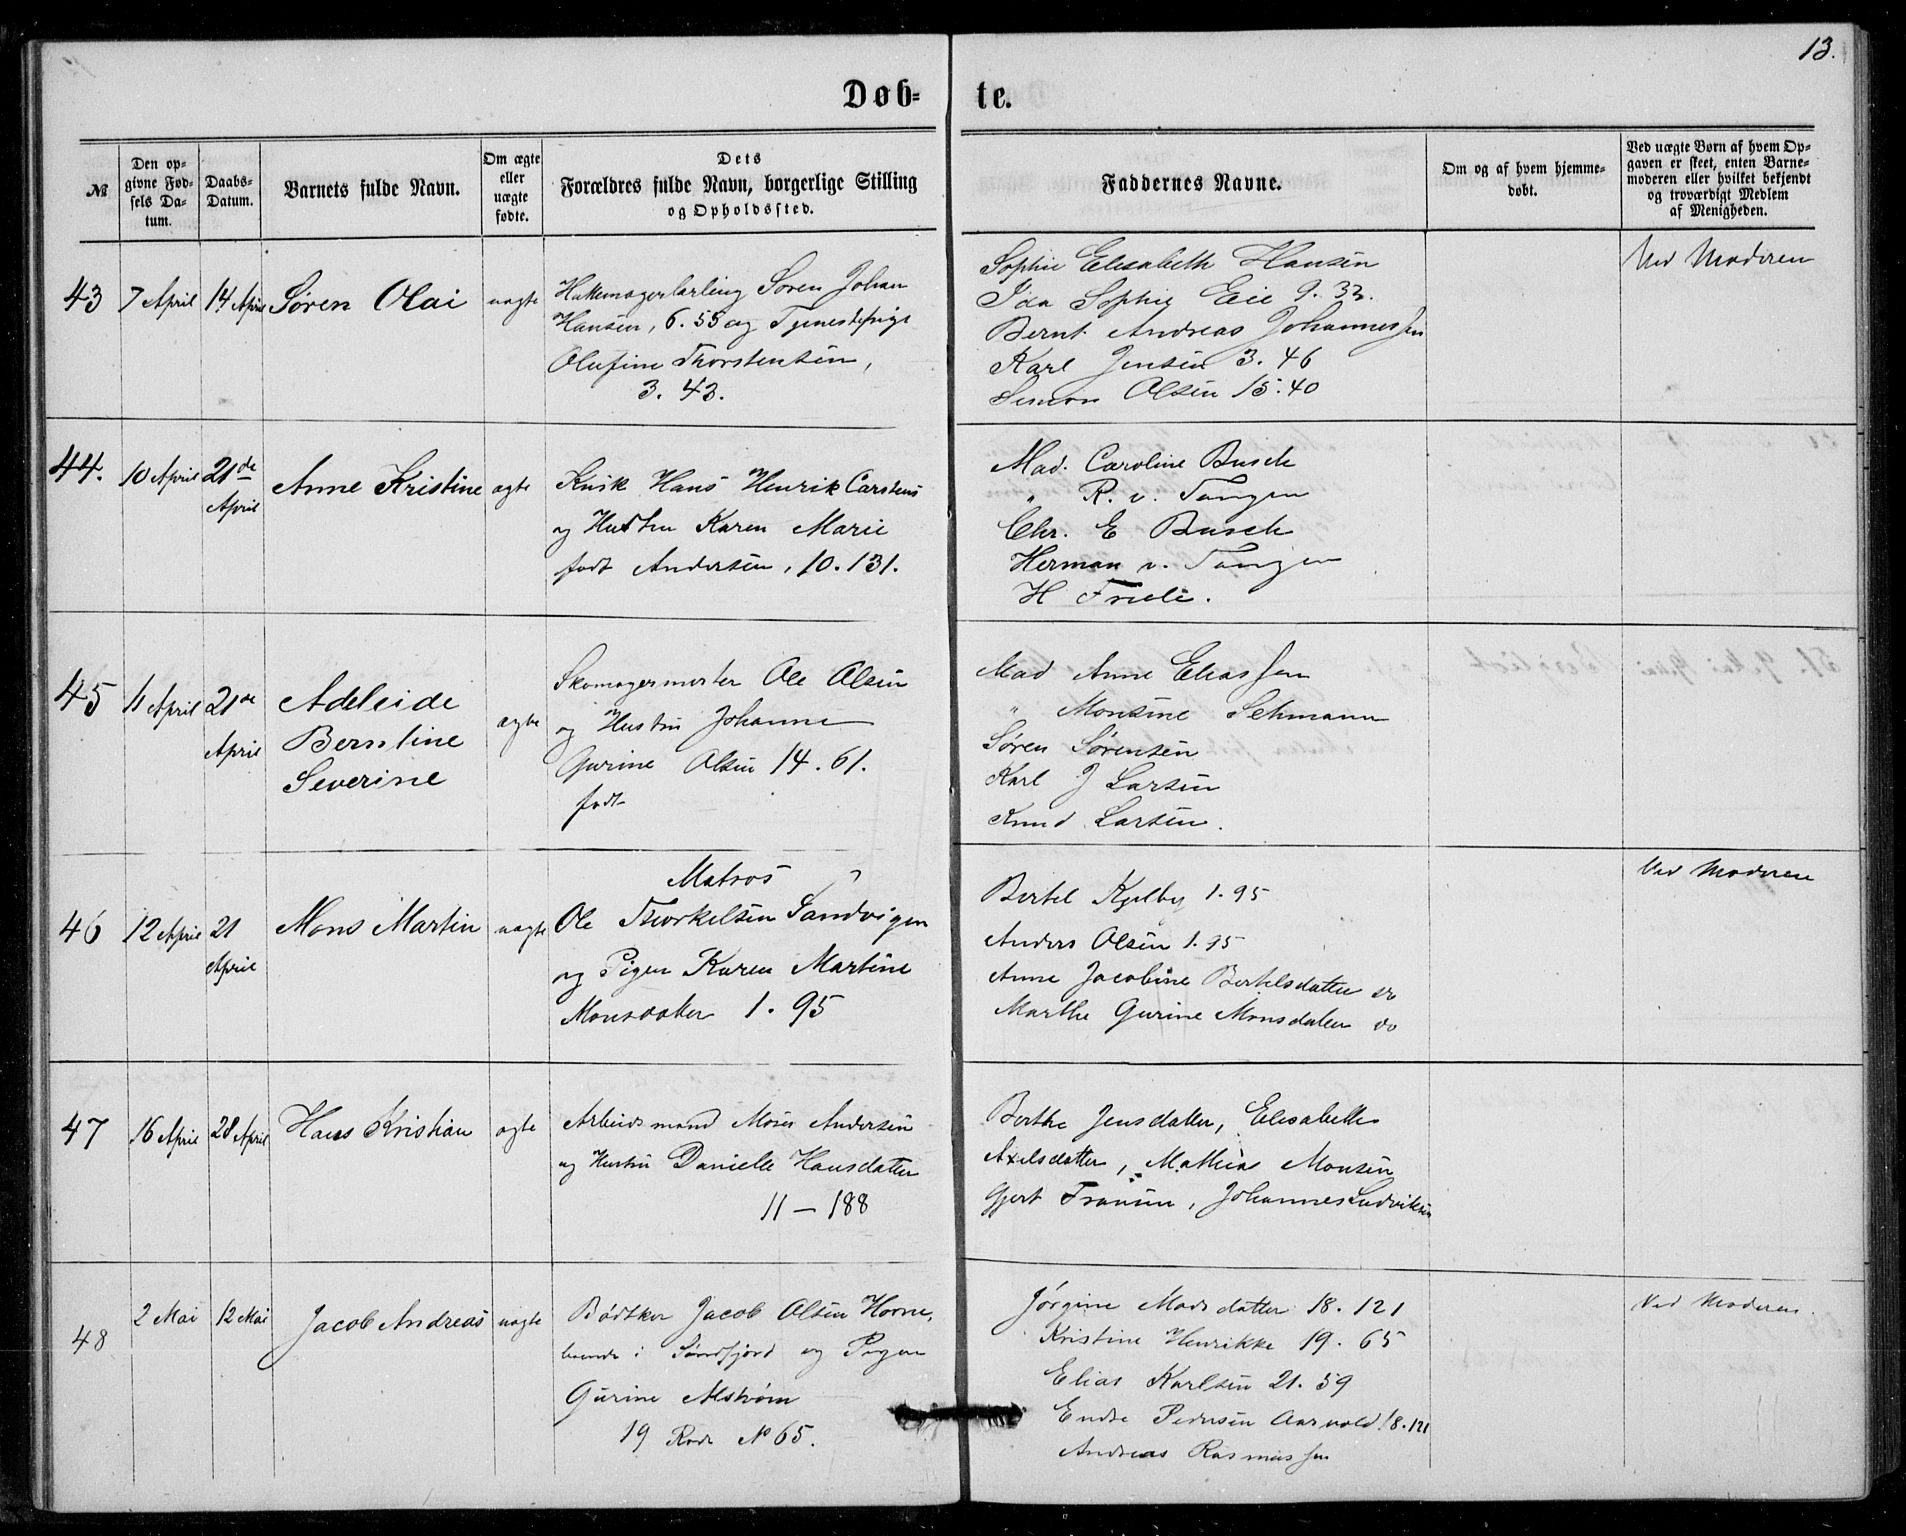 13.
Døb- te.
№
Den op-
givne Fød-
sels Da-
tum.
Daabs-
Datum.
Barnets fulde Navn.
Om ægte
eller
uægte
fødte.
Dets
Forældres fulde Navn, borgerlige Stilling
og Opholdssted.
Faddernes Navne.
Om og af hvem hjemme-
døbt.
Ved uægte Børn af hvem Op-
gaven er skeet, enten Barne-
moderen eller hvilket bekjendt
og troværdigt Medlem
af Menigheden.
43 7 April 14 April Søren Olai uægte
Søren Johan
Hansen, 6. 55 og Tjenestepige
Olufine Thorstensen,
3. 43.
Sophie Elisabeth Hansen
Ida Sophie Eie 9. 33.
Bernt Andreas Johannessen
Karl Jensen 3. 46
Simon Olsen 15. 40
Ved Moderen
44. 10 April 21de April Anne Kristine ægte
Kusk Hans Henrik Carstens
og Hustru Karen Marie
født Andersen, 10. 131.
Mad. Caroline Busch
" R. v. Tangen
Chr. E Busch
Herman v. Tangen
H Friele.
45 11 April 21de April
Adeleide
Berntine
Severine
ægte
Skomagermester Ole Olsen
og Hustru Johanne
Gurine Olsen 14. 61.
født
Mad Anne Eliassen
" Monsine Sehmann
Søren Sørensen
Karl J Larsen
Knud Larsen.
46 12 April 21 April Mons Martin uægte
Matros
Ole Thorkelsen Sandvigen
og Pigen Karen Martine
Monsdatter 1. 95
Bertel Kjelby 1. 95
Anders Olsen 1. 95
Anne Jacobine Bertelsdatter do
Marthe Gurine Monsdatter do
Ved Moderen
47 16 April 28 April Hans Kristian ægte
Arbeidsmand Moses Andersen
og Hustru Danielle Hansdatter
11 — 188
Berthe Jensdatter, Elisabeth
Axelsdatter, Mathias Monsen
Gjert Fransen, Johannes Ludviksen
48 2 Mai 12 Mai Jacob Andreas uægte
Bødtker Jacob Olsen Horne,
boende i Søndfjord og Pigen
Gurine Alstrøm
19 Rode No 65.
Jørgine Madsdatter 18. 121
Kristine Henrikke 19. 65
Elias Karlsen 21. 59
Endre Pedersen Aarvold 18. 121
Andreas Rasmussen
Ved Moderen.